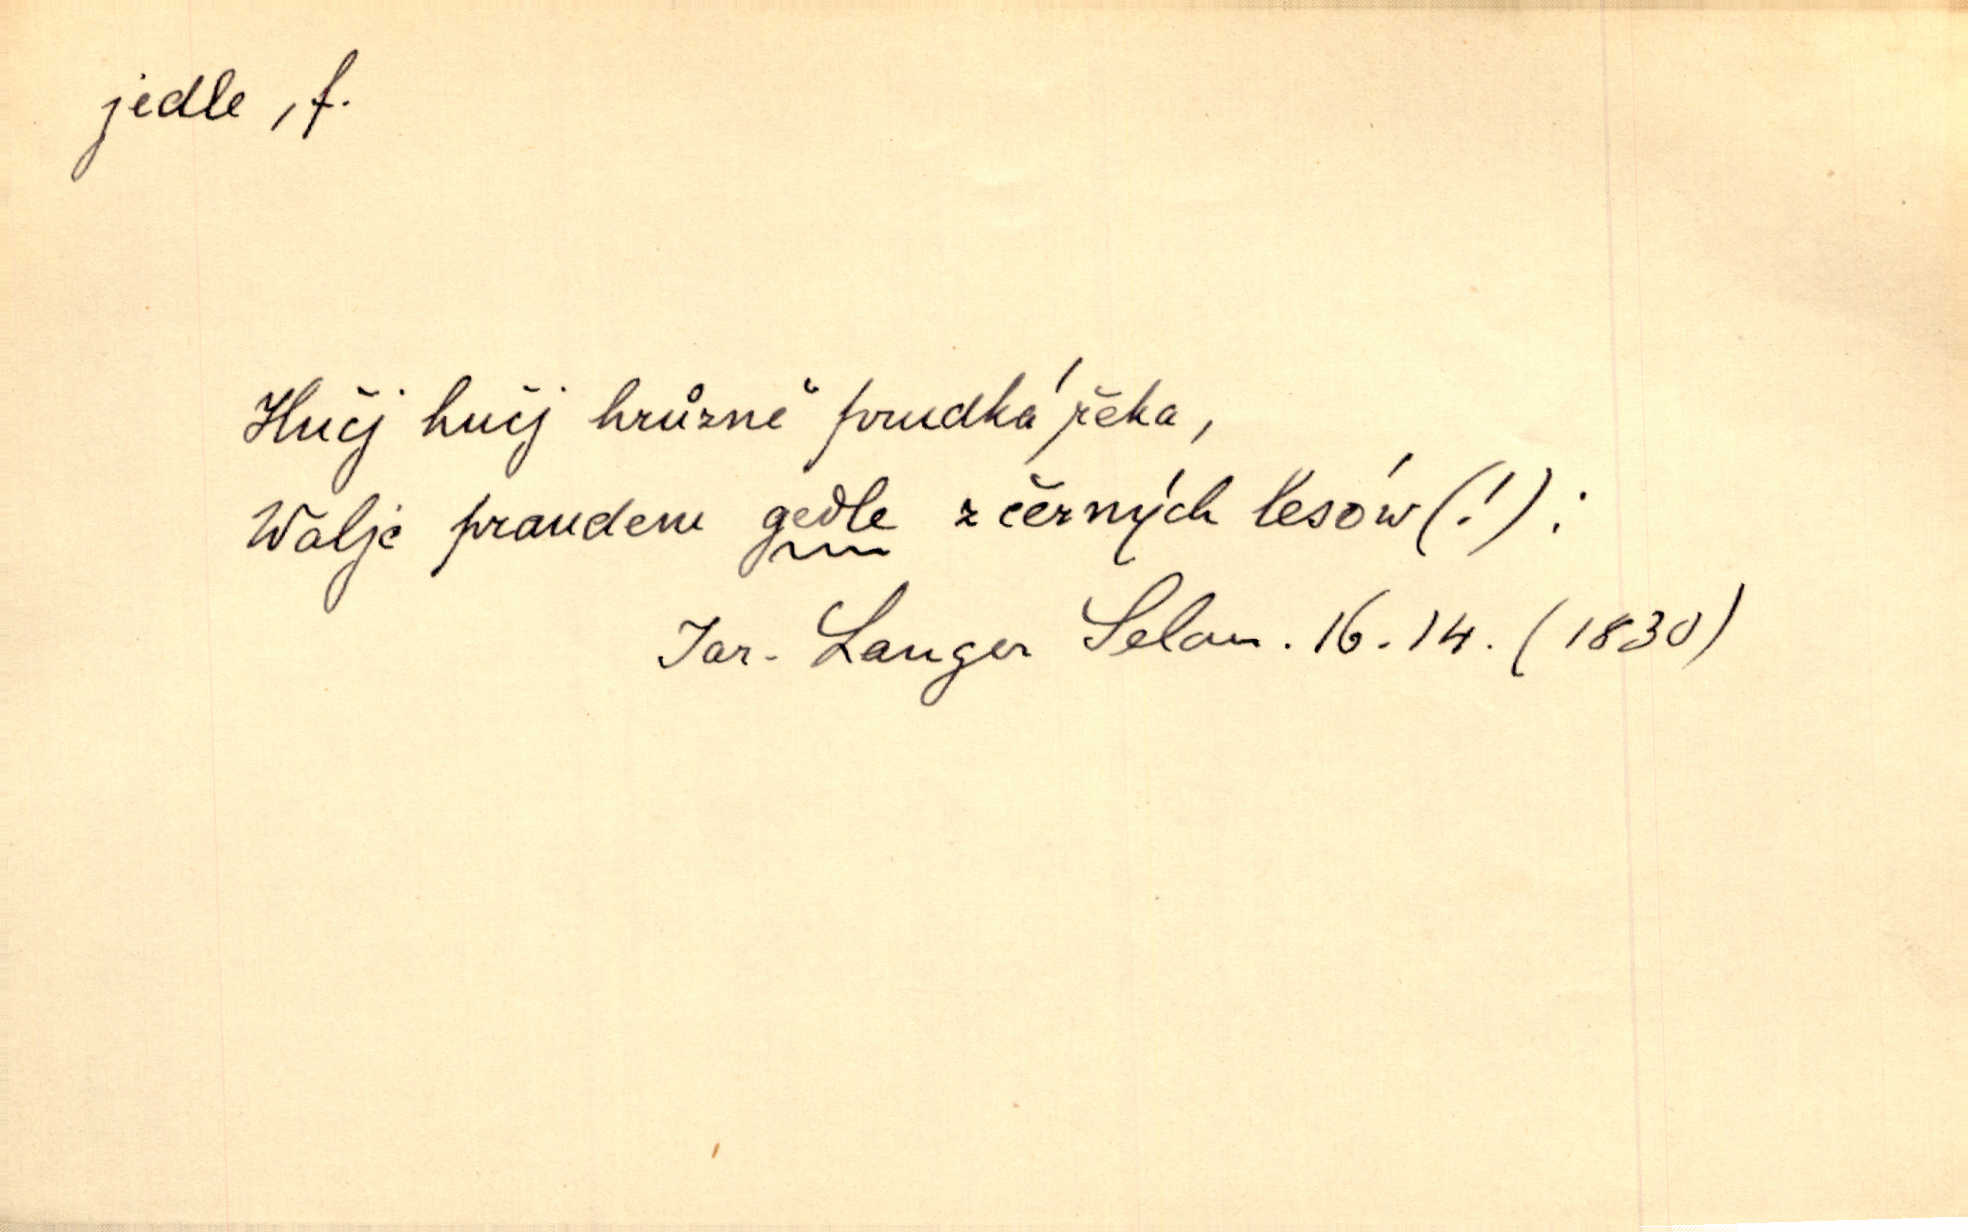 jedle, f.
Hučj hučj hrůzně prudká řeka,
Waljc praudem gedle z černých lesów (!);
Jar. Langer Selan. 16. 14. (1830)